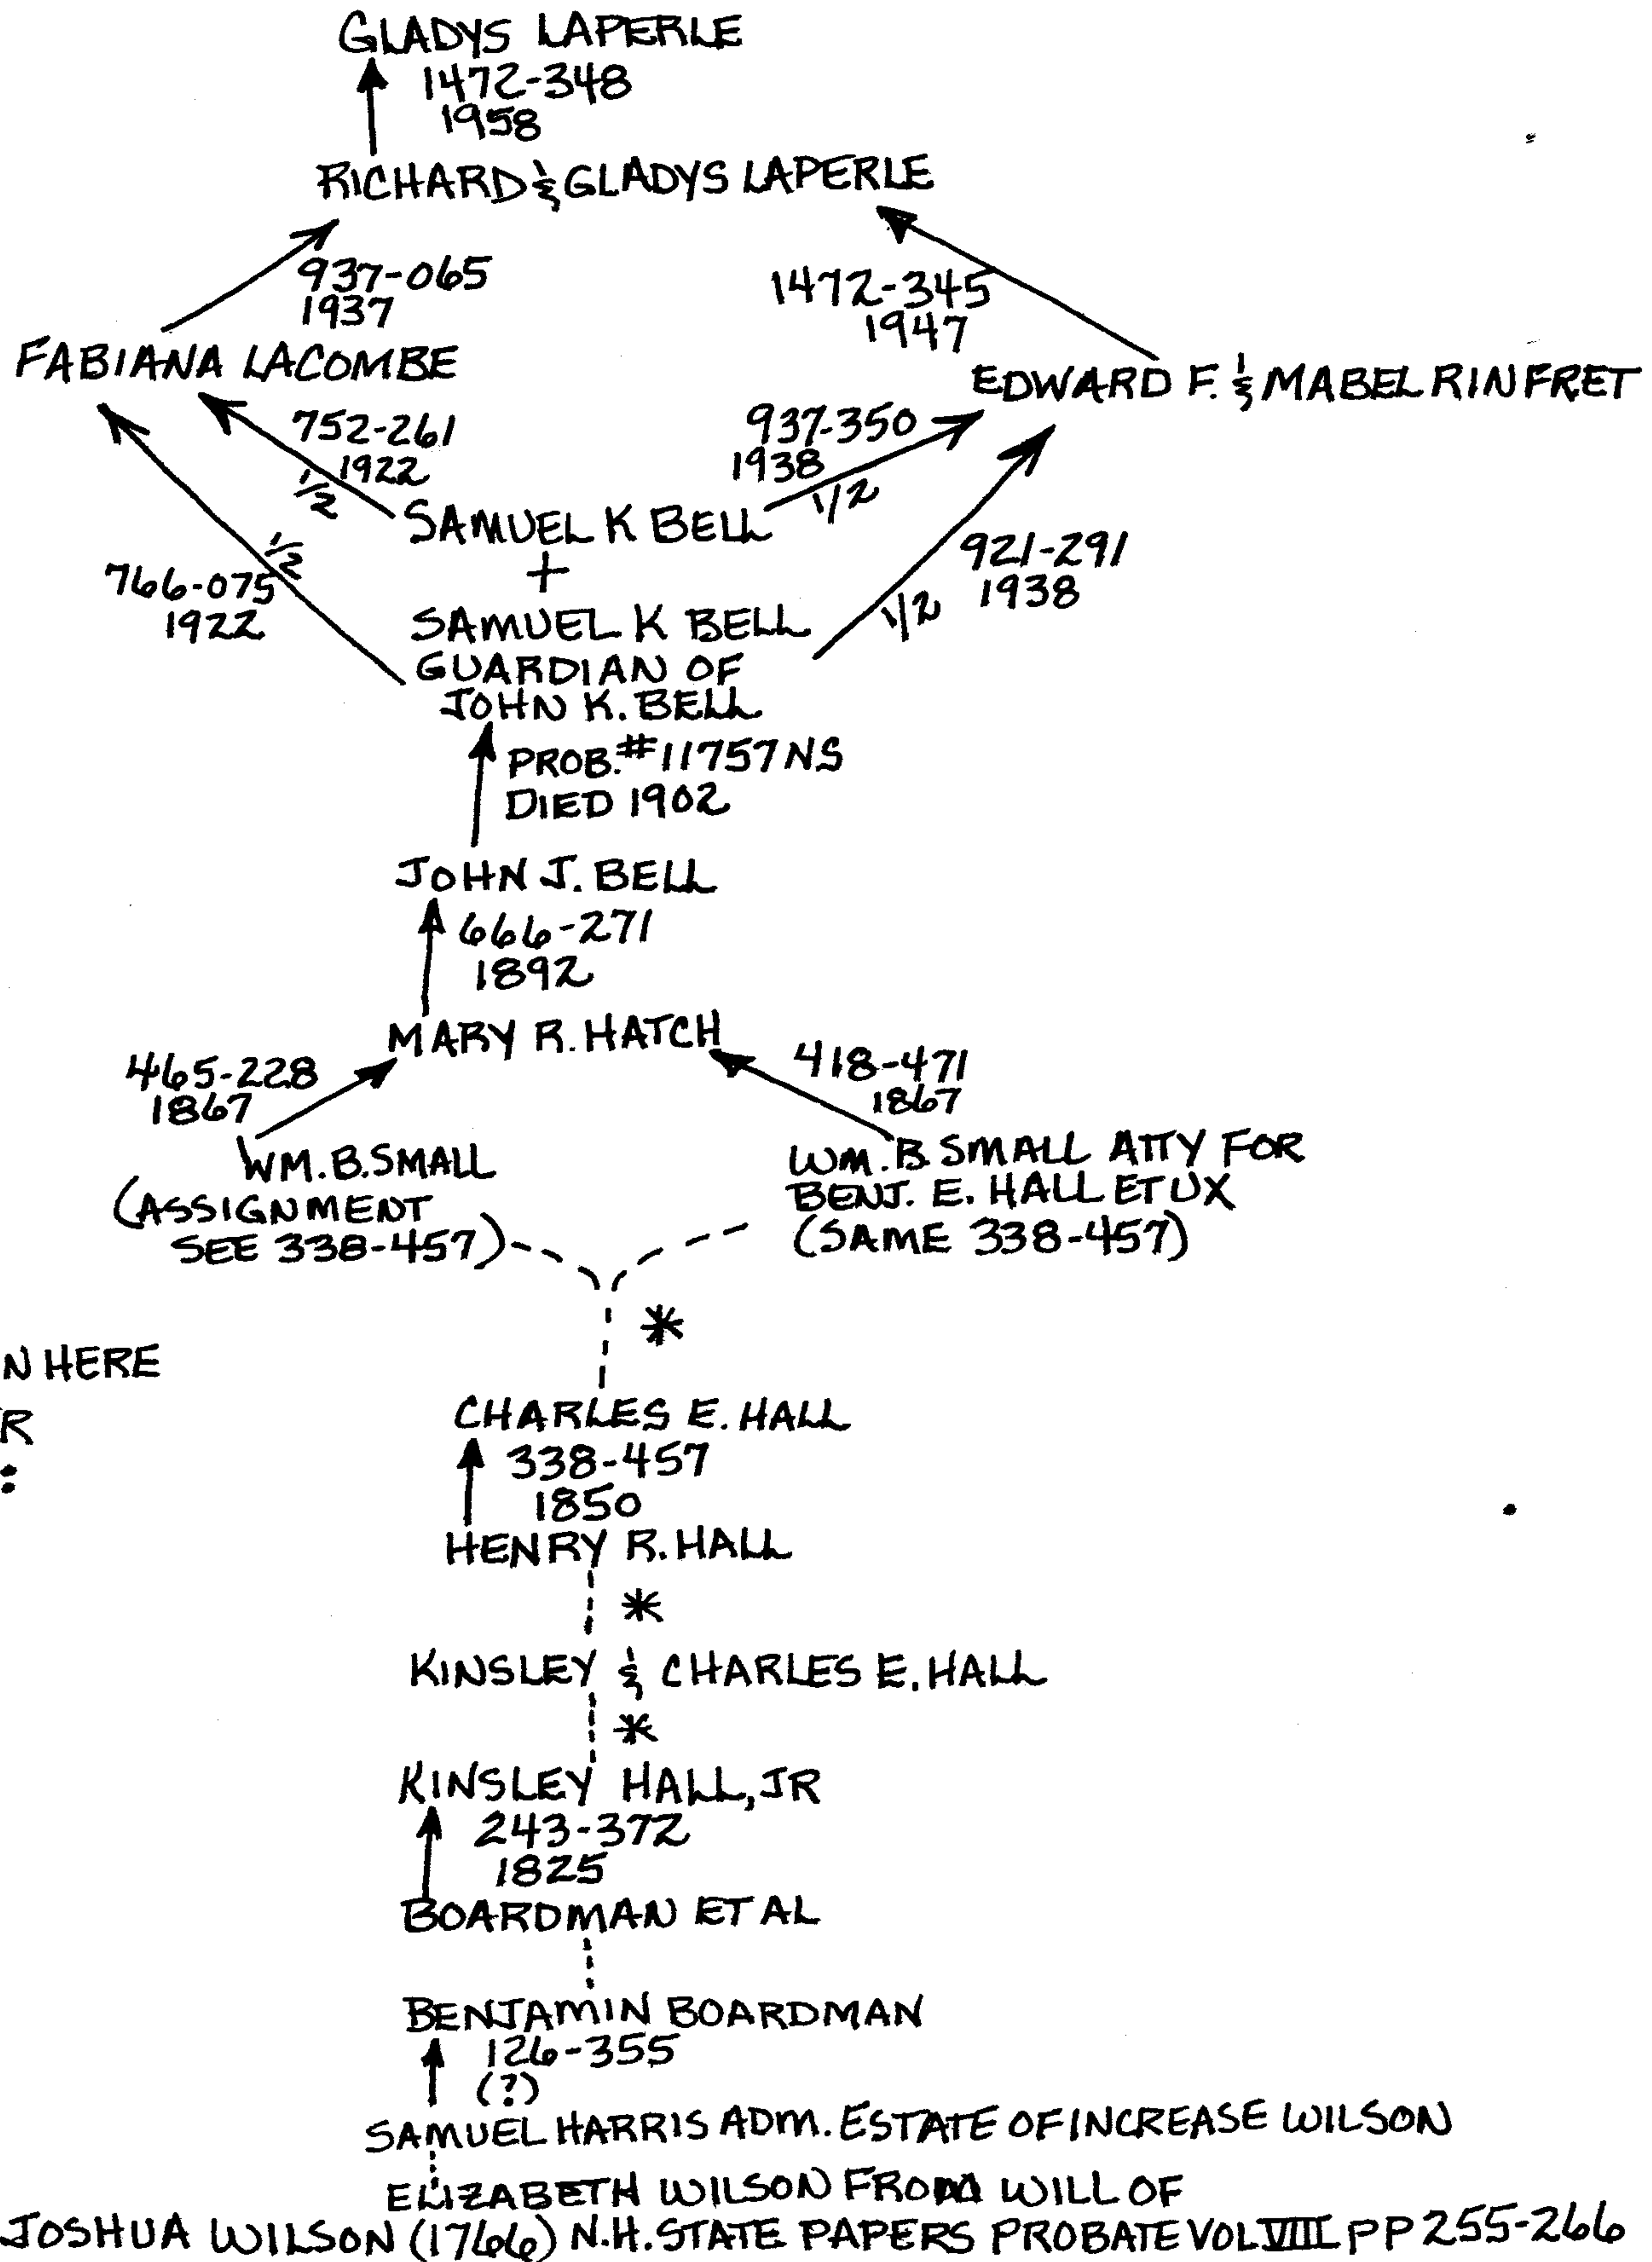 GLADYS LAPERLE
1472-348
1958
RICHARD & GLADYS LAPERLE
937-065
1937
1472-345
1947
FABIANA LACOMBE
EDWARD F. & MABEL RINFRET
752-261
1922
1/2
937-350
1938
1/2
SAMUEL K BELL
+
766-075
1922
1/2
921-291
1938
1/2
SAMUEL K BELL
GUARDIAN OF
JOHN K. BELL
PROB.#11757 NS
DIED 1902
JOHN J. BELL
666-271
1892
MARY R. HATCH
465-228
1867
418-471
1867
WM. B. SMALL
(ASSIGNMENT
SEE 338-457)
WM. B. SMALL ATTY FOR
BENJ. E. HALL ET UX
(SAME 338-457)
*
N HERE
R
:
CHARLES E. HALL
338-457
1850
HENRY R. HALL
*
KINSLEY & CHARLES E. HALL
*
KINSLEY HALL, JR
243-372
1825
BOARDMAN ET AL
BENJAMIN BOARDMAN
126-355
(?)
SAMUEL HARRIS ADM. ESTATE OF INCREASE WILSON
ELIZABETH WILSON FROM WILL OF
JOSHUA WILSON (1766) N.H. STATE PAPERS PROBATE VOL VIII PP 255-266